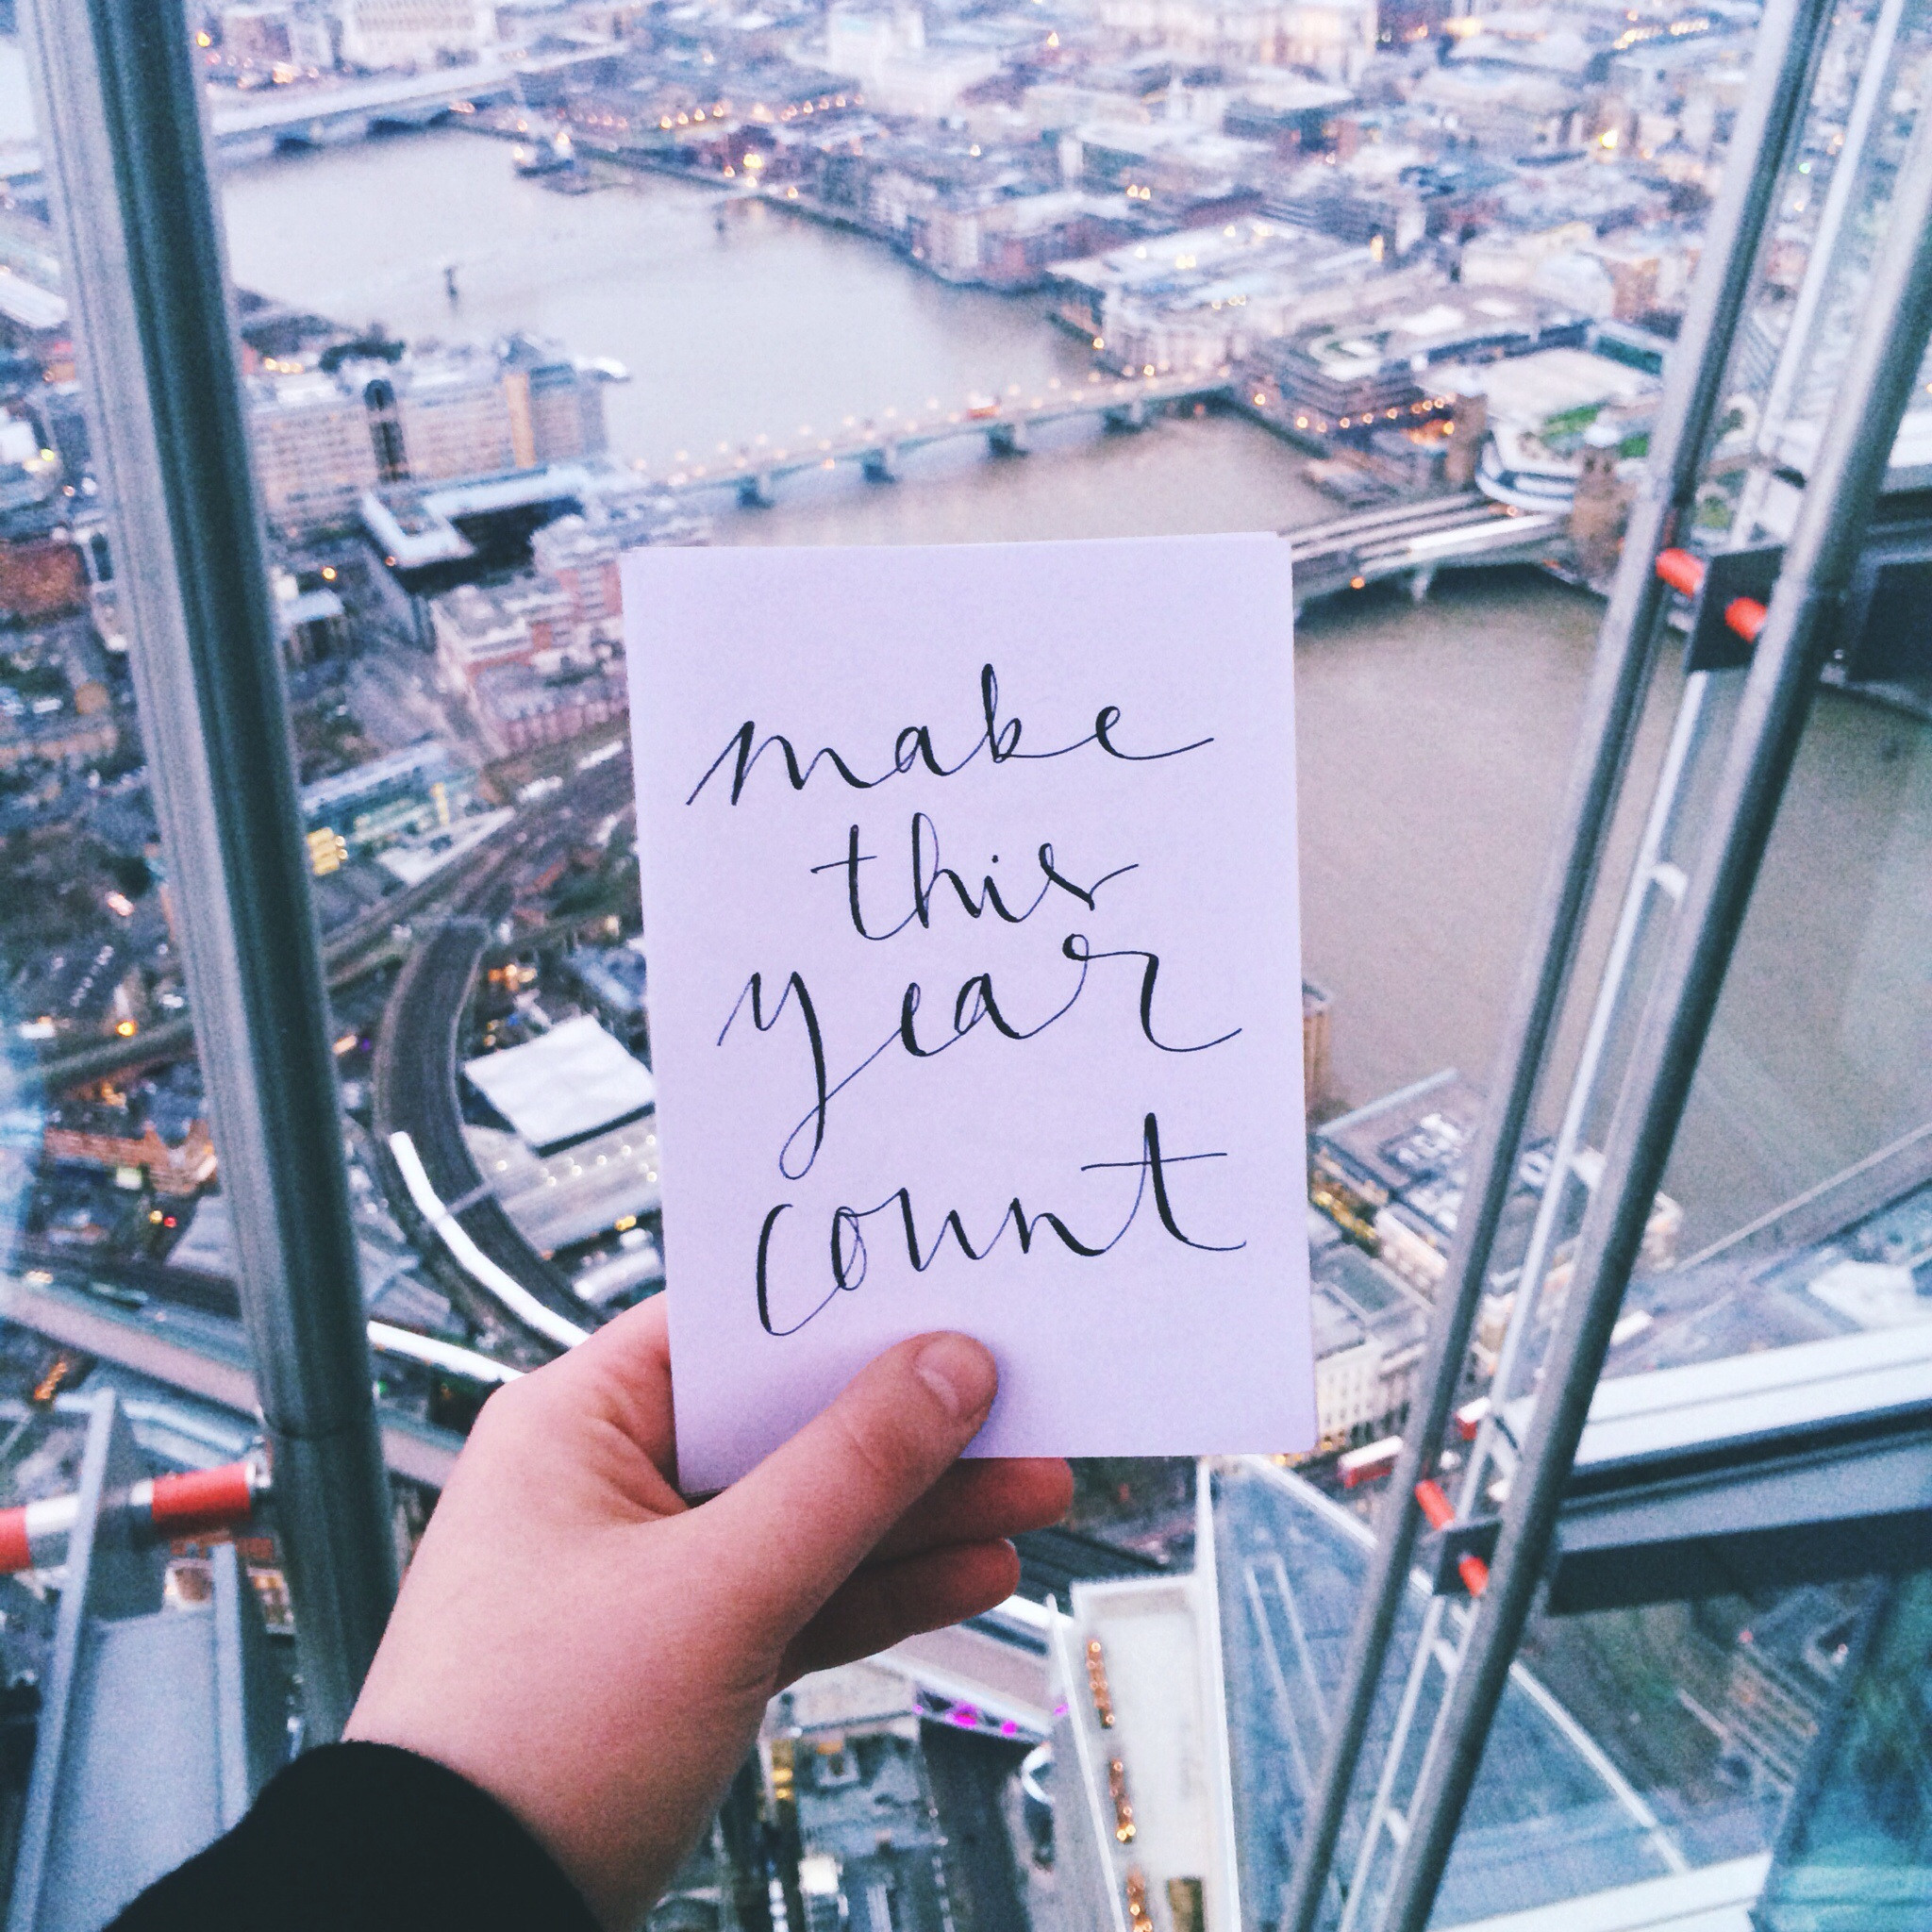 make
this
year
count